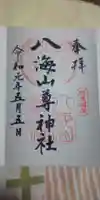 奉拝
八海山尊神社
令和元年五月五日